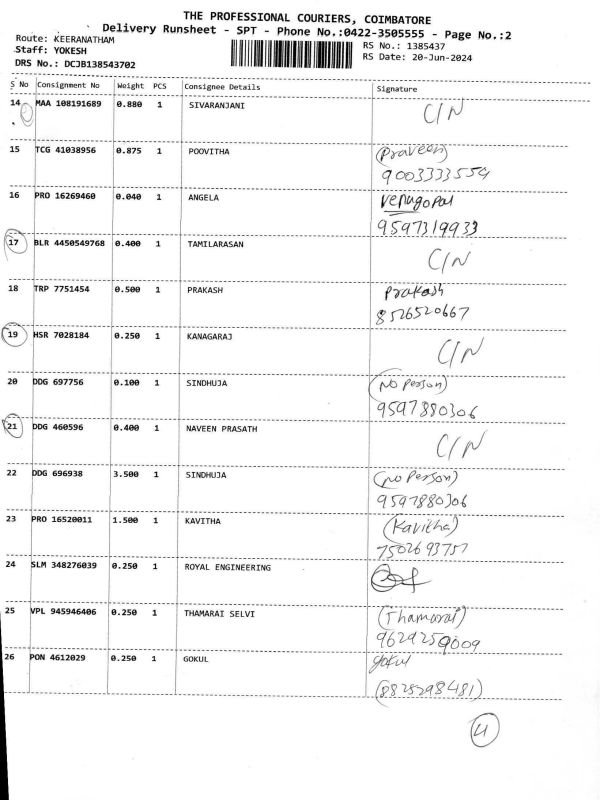 THE PROFESSIONAL COURIERS, COIMBATORE
Delivery Runsheet - SPT - Phone No.:0422-3505555 - Page No.:2
Route: KEERANATHAM
RS No.: 1385437
Staff: YOKESH
RS Date: 20-Jun-2024
DRS No.: DCJB138543702
S No Consignment No Weight PCS Consignee Details Signature
14 MAA 108191689 0.880 1 SIVARANJANI C/N
15 TCG 41038956 0.875 1 POOVITHA (Praveen)
9003333554
16 PRO 16269460 0.040 1 ANGELA Venugopal
9597319933
17 BLR 4450549768 0.400 1 TAMILARASAN C/N
18 TRP 7751454 0.500 1 PRAKASH Prakash
8526520667
19 HSR 7028184 0.250 1 KANAGARAJ C/N
20 DDG 697756 0.100 1 SINDHUJA (No Person)
9597880306
21 DDG 460596 0.400 1 NAVEEN PRASATH C/N
22 DDG 696938 3.500 1 SINDHUJA (No Person)
9597880306
23 PRO 16520011 1.500 1 KAVITHA (Kavitha)
7502693757
24 SLM 348276039 0.250 1 ROYAL ENGINEERING
25 VPL 945946406 0.250 1 THAMARAI SELVI (Thamarai)
9629259009
26 PON 4612029 0.250 1 GOKUL gokul
(8825298481)
4